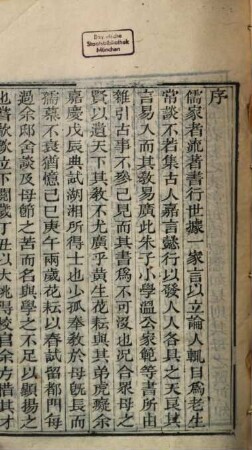 Bayerische
Staatsbibliothek
München
序
儒家者流著書行世據一家言以立論人輒目爲老生
常談不若集古人嘉言懿行以發人人各具之天良其
言易入而其敎易廣此朱子小學溫公家範等書所由
雜引古事不參己見而其書爲不可沒也況合衆母之
賢以遺天下其敎不尤廣乎黃生花耘與其弟虎癡余
嘉慶戊辰典試湖湘所得士也少孤奉敎於母旣長而
孺慕不衰猶憶己巳庚午兩歲花耘以春試留都門每
過余邸舍談及母節之苦而名與學之不足以顯揚之
也著欷歔泣下閱歲丁丑以大挑得校官余方惜其才